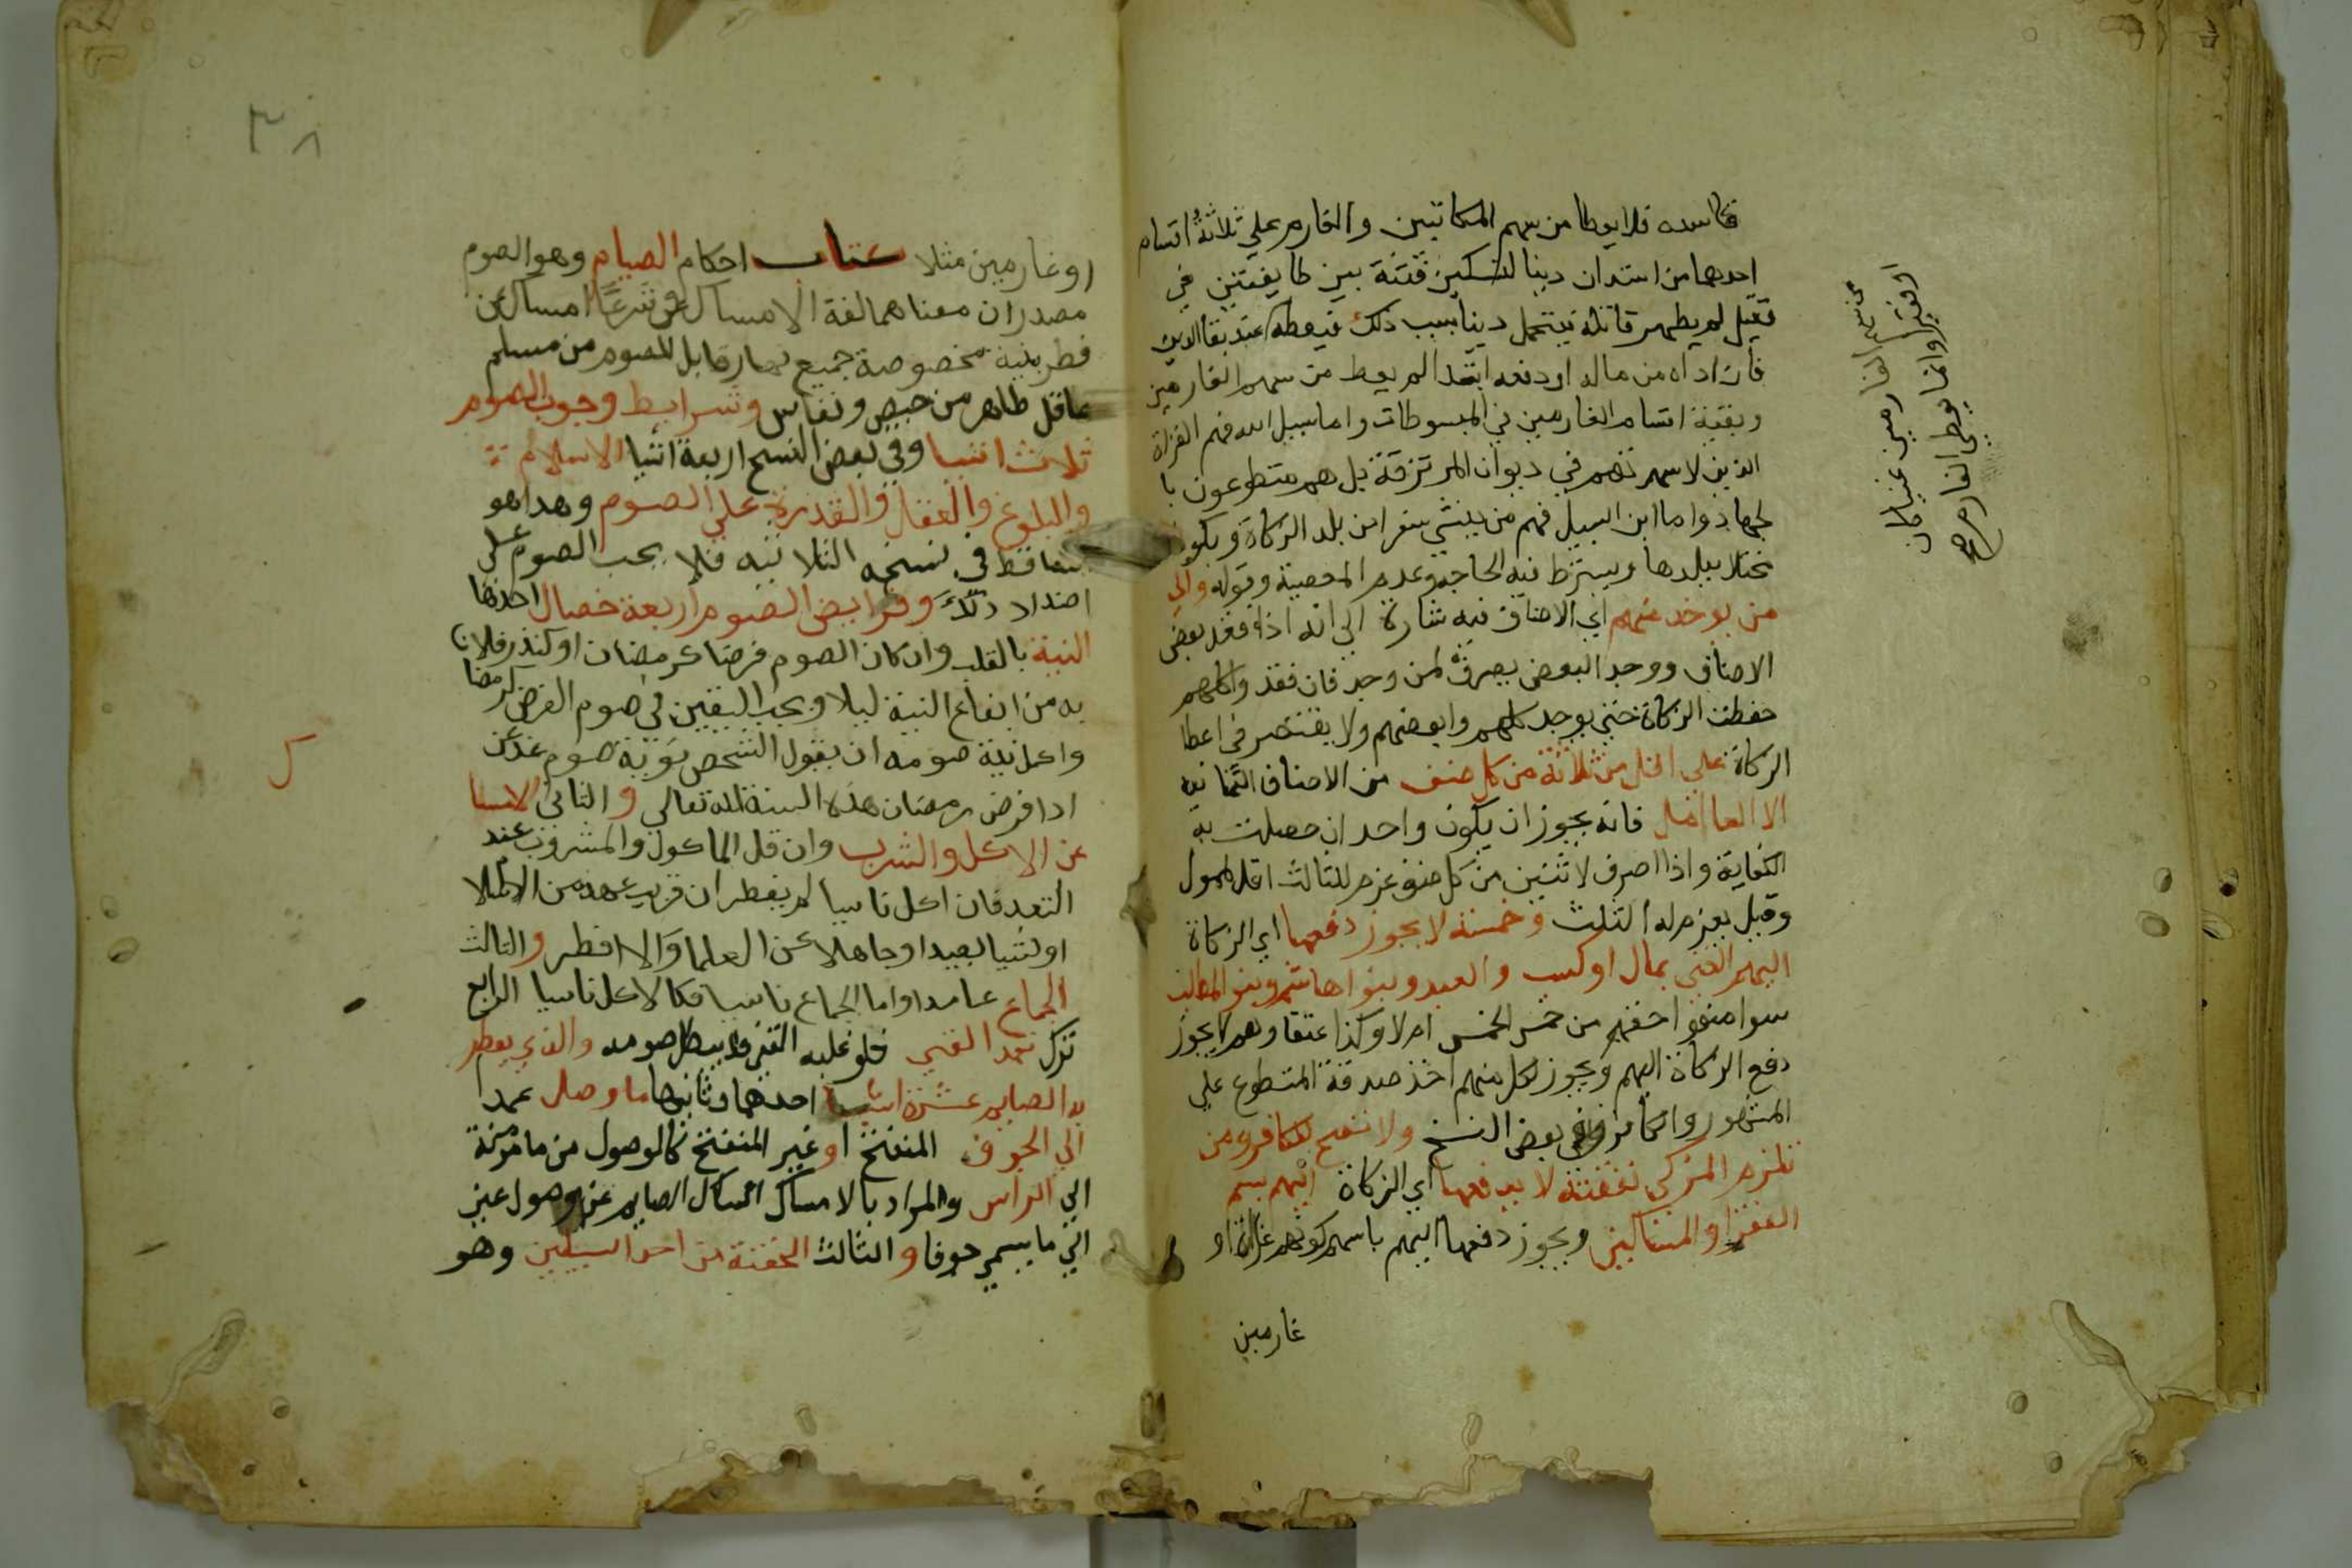 فاسده فلا يعطا من سهم المكاتبين والغارم علي ثلاثة اقسام
احدها من استدان دينا لتسكين فتنة بين طايفتين في
قتيل لم يظهر قاتله فيتحمل دينا بسبب ذلك فيعطه عند بقا الدين
فان اداه من ماله او دفعه ابتدا لم يعط من سهم الغارمين
وبقية اقسام الغارمين في المبسوطات واما سبيل الله فهم الغزاة
الذين لا سهم لهم في ديوان المرتزقة بل هم متطوعون با
لجهاد واما ابن السبيل فهم من ينشي سفرا من بلد الزكاة ويكون
مختلا ببلدها ويشترط فيه الحاجه وعدم المعصية وقوله والي
من يوخد منهم اي الاصناف فيه شارة الي انه اذا فقد بعض
الاصناف ووجد البعض يصرف لمن وجد فان فقدوا كلهم
حفظت الزكاة حتي يوجد كلهم وابعضهم ولا يقتصر في اعطا
الزكاة علي اقل من ثلاثة من كل صنف من الاصناف الثمانيه
الا العامل فانه يجوز ان يكون واحد ان حصلت به
الكفاية واذا اصرف لاثنين من كل صنف غرم للثالث اقل
وقيل يغرم له الثلث وخمسة لا يجوز دفعها اي الزكاة
اليهم الغني بمال او كسب والعبد وبنوا هاشم وبنو المطلب
سوا منعوا حقهم من خمس الخمس ام لا وكذا عتقاوهم لا يجوز
دفع الزكاة اليهم ويجوز لكل منهم اخذ صدقة التطوع علي
المشهور والكافر وفي بعض النسخ ولا تصح للكافر ومن
تلزم المزكي نفقته لا يدفعها اي الزكاة اليهم بسم
الفقرا والمساكين ويجوز دفعها اليهم باسم كونهم غزاة او
غارمين
او فقيرا وانما يعطي الغارم
من سهم الغارمين غنيا كان
٣٨
او غارمين مثلا كتاب احكام الصيام وهو الصوم
مصدران معناهما لغة الامساك وشرعا امساك عن
فطر بنية مخصوصة جميع نهار قابل للصوم من مسلم
عاقل طاهر من حيض ونفاس وشرايط وجوب الصوم
ثلاث اشيا وفي بعض النسخ اربعة اشيا الاسلام
والبلوغ والعقل والقدرة علي الصوم وهدا هو
الساقط في نسخه الثلاثه فلا يجب الصوم علي
اضداد ذلك وفرايض الصوم اربعة خصال احدها
النية بالقلب وان كان الصوم فرضا كرمضان او كنذر فلا
به من ايقاع النية ليلا ويجب اليقين في صوم الفرض كرمضا
واكمل نية صومه ان يقول الشخص نويت صوم غد عن
ادا فرض رمضان هذه السنة لله تعالي والثاني الامسا
عن الاكل والشرب وان قل الماكول والمشروب عند
التعمد فان اكل ناسيا لم يفطر ان قريب عهد من الاسلا
او نشيا بعيدا وجاهلا عن العلما والا افطر والثالث
الجماع عامدا واما الجماع ناسيا فكالاكل ناسيا الرابع
ترك تعمد القي فلو غلبه القي فلا يبطل صومه والذي يفطر
به الصايم عشرة اشيا احدها وثانيها ما وصل عمدا
الي الجوف المنفتح او غير المنفتح كالوصول من مامومة
الي الراس والمراد بالامساك امساك الصايم عن وصول عين
الي ما يسمي جوفا والثالث الحقنة من احد السبيلين وهو